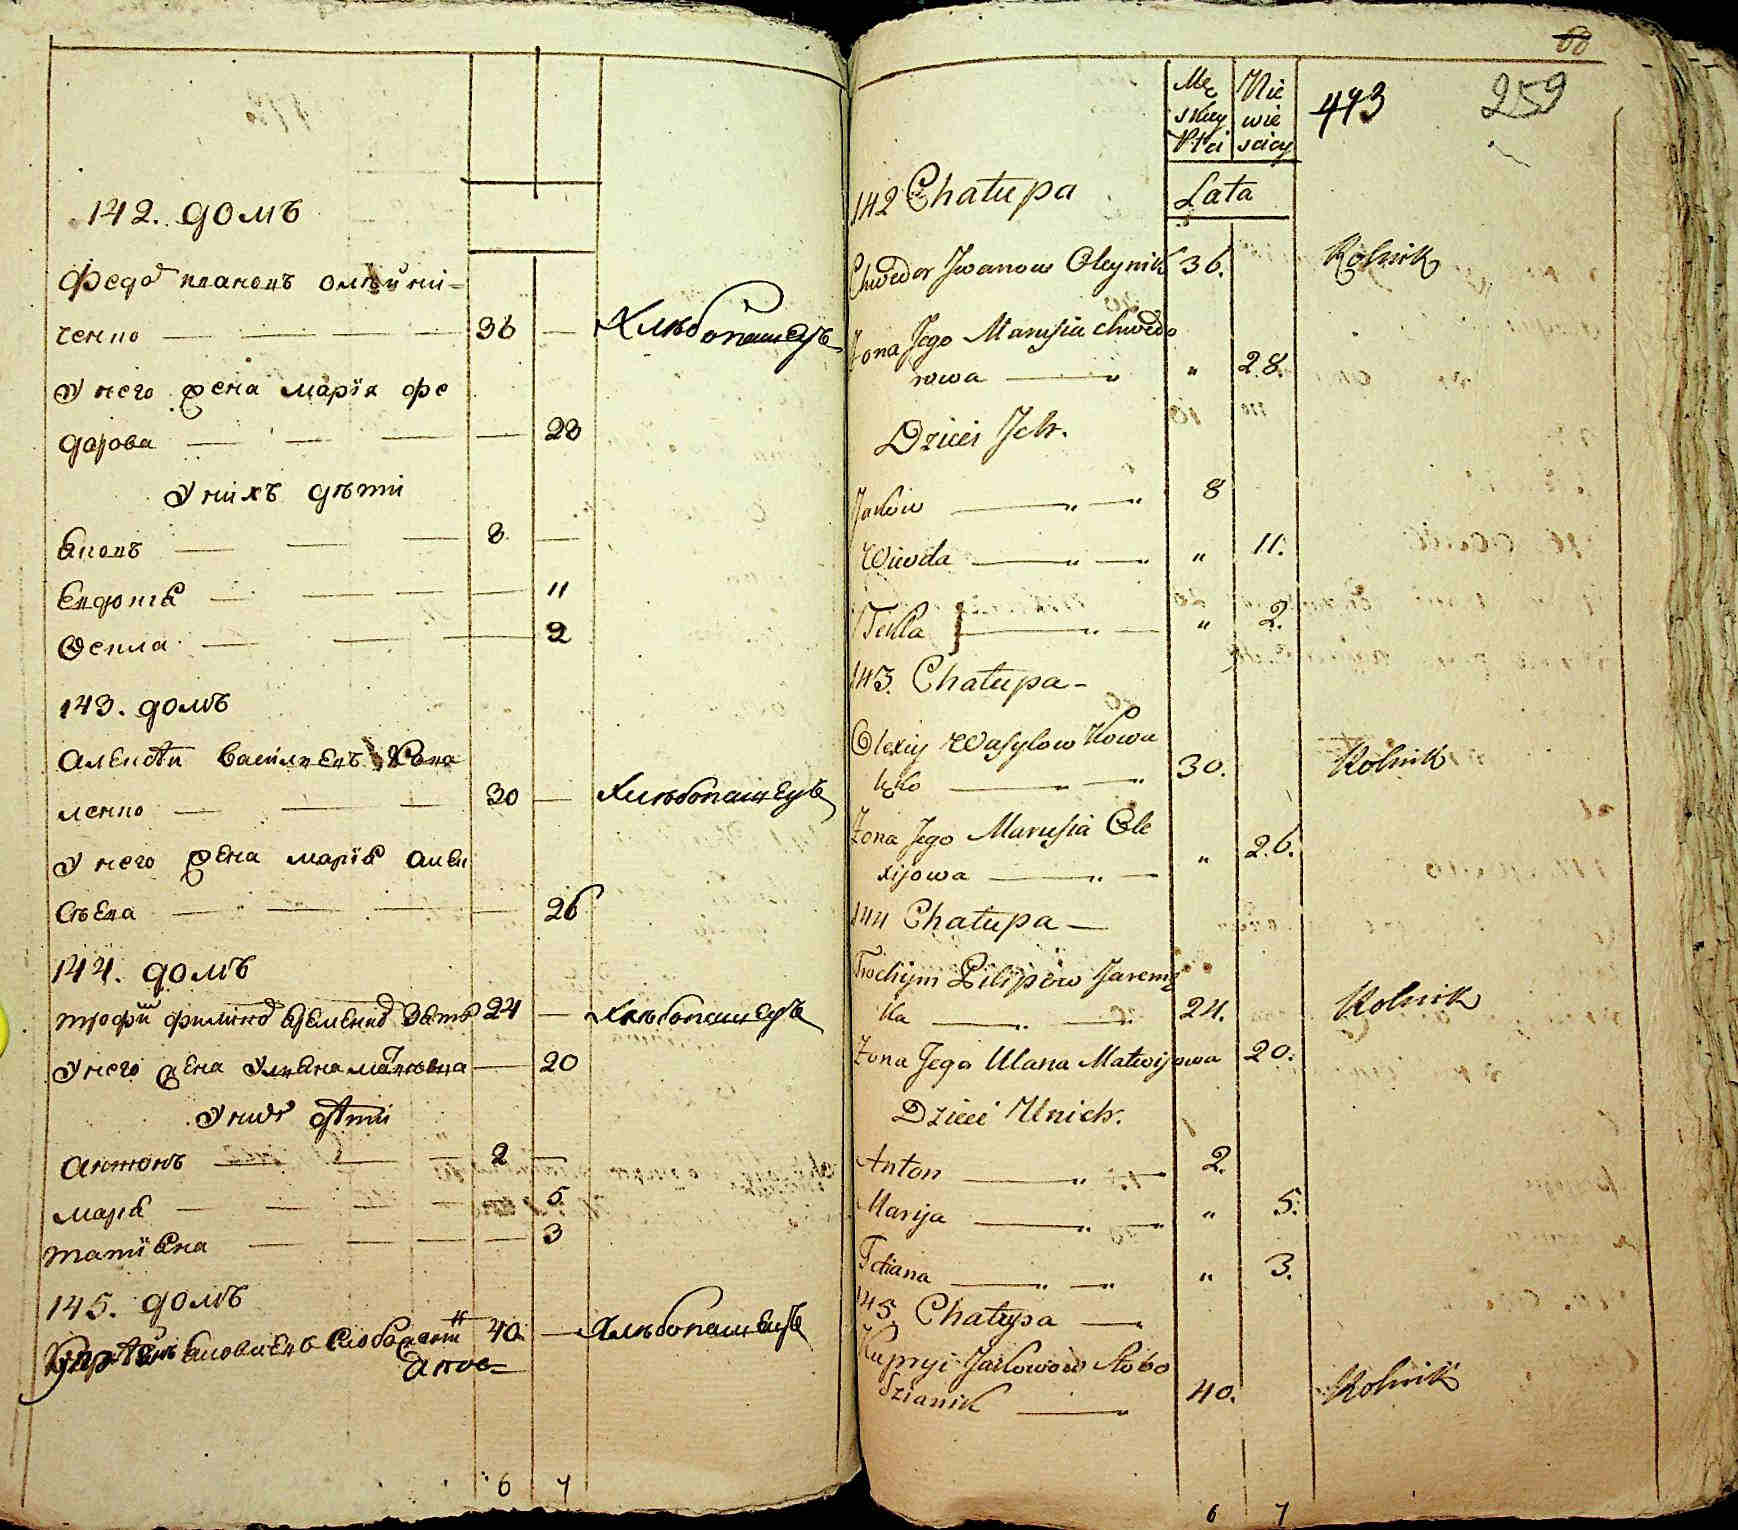 142. домъ
Федо ивановъ олѣйни=
ченко 36 — Хлѣбопашецъ
У него жена марія фе
дорова — 28
У нихъ дѣти
яковъ 8 —
Евдокія — 11
Ѳекла — 2
143. домъ
алексѣй васильевъ Кова
ленко 30 — Хлѣбопашецъ
У него жена марія алек
сѣева — 26
144. домъ
трофи филипо 24 — Хлѣбопашецъ
У него жена Ульяна матвѣевна — 20
У них дѣти
антонъ — 2 —
маря — 5
татіяна — 3
145. домъ
Купрѣянъ яковлевъ 40 — Хлѣбопашецъ
6 7
60
Mę Nie 443 259
skiey wie
Płci sciey
142 Chałupa Lata
Chwedor Jwanow Oleynik 36. Rolnik
Żona Jego Marusia Chwedo
rowa " 28.
Dzieci Ich.
Jakow 8
Wiwda " 11.
Tekla " 2.
143. Chałupa -
Olexiy Wasylow Kowa
lęko 30. Rolnik
Żona Jego Marusia Ole
xijowa " 26.
144 Chałupa —
Trochym Pilipow Jaremę
ka 24. Rolnik
Żona Jego Ulana Matwijowa 20.
Dzieci Unich.
Anton 2.
Marija " 5.
Tetiana " 3.
145 Chałupa —
Kupryi Jakowow Słobo
dzianik 40. Rolnik
6 7